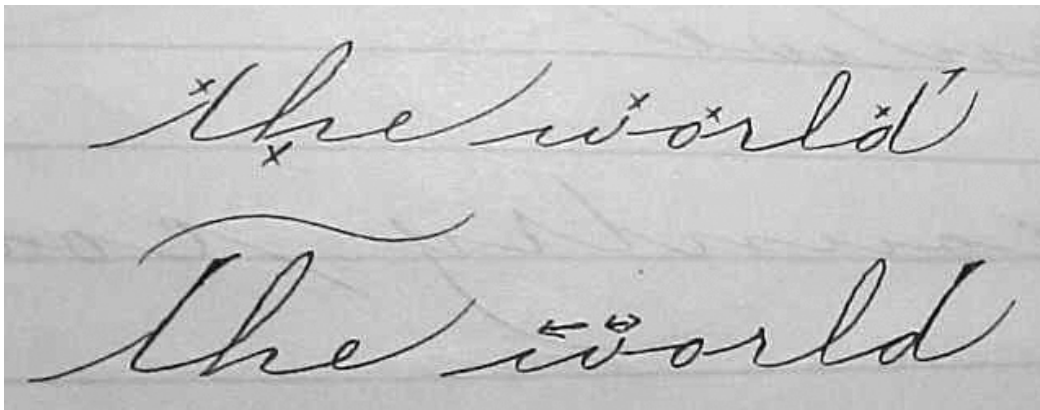 the world
the world